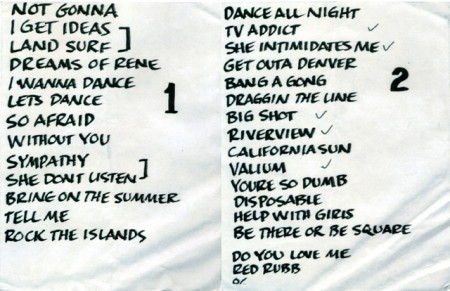 NOT GONNA
I GET IDEAS
LAND SURF
DREAMS OF RENE
I WANNA DANCE
LETS DANCE
SO AFRAID
WITHOUT YOU
SYMPATHY
SHE DONT LISTEN
BRING ON THE SUMMER
TELL ME
ROCK THE ISLANDS
1
DANCE ALL NIGHT
TV ADDICT ✓
SHE INTIMIDATES ME ✓
GET OUTA DENVER
BANG A GONG
DRAGGIN THE LINE
BIG SHOT ✓
RIVERVIEW ✓
CALIFORNIA SUN
VALIUM ✓
YOURE SO DUMB
DISPOSABLE
HELP WITH GIRLS
BE THERE OR BE SQUARE
DO YOU LOVE ME
RED RUBB
2